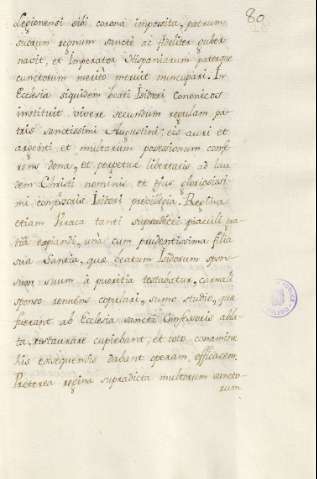 80
Legionensi sibi corona imposita, patrum
suorum regnum sanctè ac fideliter guber
navit, et Imperator Hispaniarum paterque
cunctorum merito meruit nuncupari. In
Ecclesia siquidem beati Isidori Canonicos
instituit vivere secundum regulam pa
tris sanctissimi Augustini; eis auri et
argenti et multarum possesionum confe
rens dona, et perpetuæ libertatis ad lau
dem Christi nominis et ejus gloriosisi
mi confessoris Isidori privilegia. Regina
etiam Urraca tanti supradicti piaculi pa
tris expiandi, unà cum prudentissima filia
sua Sancia, quæ beatum Isidorum spon
sum suum à pueritia testabatur, carnali
sponso rennens copulari, summo studio, quæ
fuerant ab Ecclesia sancti Confessoris abla
ta, restaurare cupiebant, et toto conamine
his exsequendis dabant operam efficacem.
Præterea regina supradicta multorum sancto-
rum